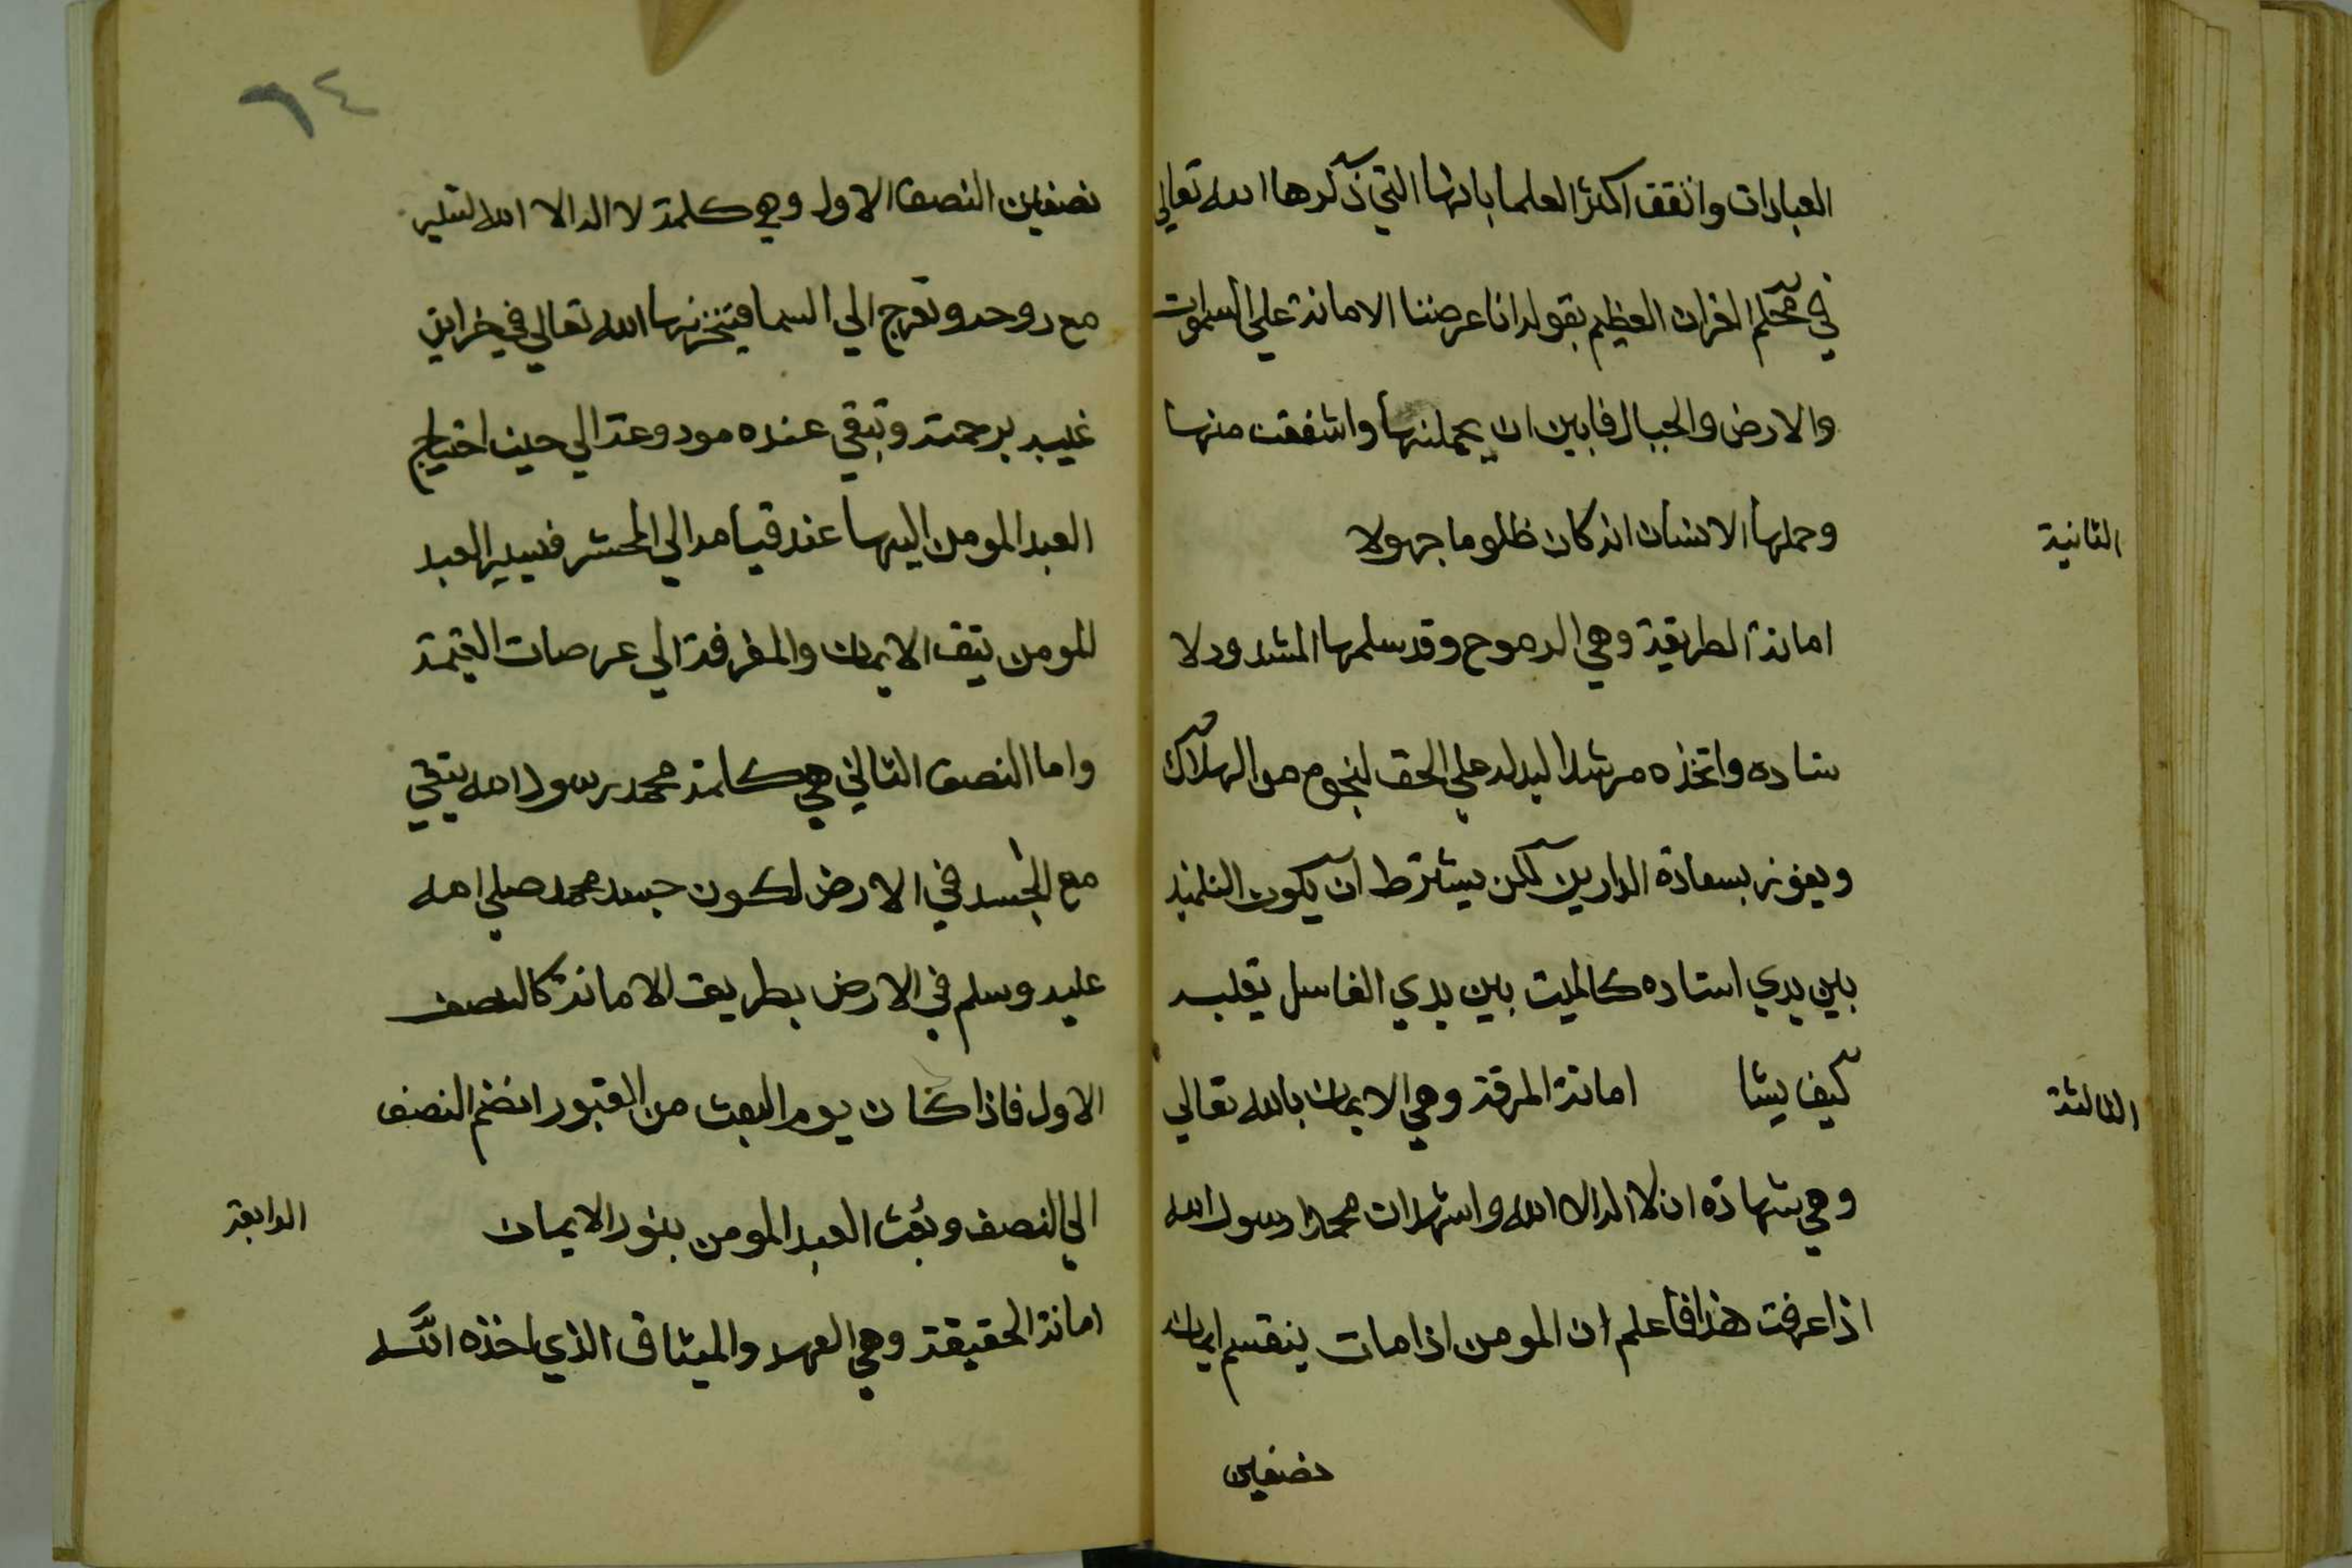 العبارات واتفقت اكثر العلما بانها التي ذكرها الله تعالي
في محكم القران العظيم بقوله انا عرضنا الامانة علي السموات
والارض والجبال فابين ان يحملنها واشفقت منها
الثانية
وحملها الانسان انه كان ظلوما جهولا
امانة الطريقة وهي الروح وقد سلمها المشدود لا
ستاده واتخذه مرشدا ليدله علي الحق لينجو من الهلاك
ويفوز بسعادة الدارين لكن يشترط ان يكون التلميذ
بين يدي استاده كالميت بين يدي الغاسل يقلبه
الثالثة
كيف يشا امانة المعرفة وهي الايمان بالله تعالي
وهي شهادة ان لا اله الا الله واشهد ان محمدا رسول الله
اذا عرفت هذا فاعلم ان المومن اذا مات ينقسم ايمانه
نصفين
٦٤
نصفين النصف الاول وهي كلمة لا اله الا الله تسير
مع روحه وتعرج الي السما فيخزنها الله تعالي في خزاين
غيبه برحمته وتبقي عنده مودوعة الي حين احتياج
العبد المومن اليها عند قيامه الي المحشر فيسير العبد
المومن بتلك الايمان والمعرفة الي عرصات القيمة
واما النصف الثاني هي كلمة محمد رسول الله يبقي
مع الجسد في الارض لكون جسد محمد صلي الله
عليه وسلم في الارض بطريق الامانة كالنصف
الاول فاذا كان يوم البعث من القبور انضم النصف
الرابعة
الي النصف وبعث العبد المومن بنور الايمان
امانة الحقيقة وهي العهد والميثاق الذي اخذه الله